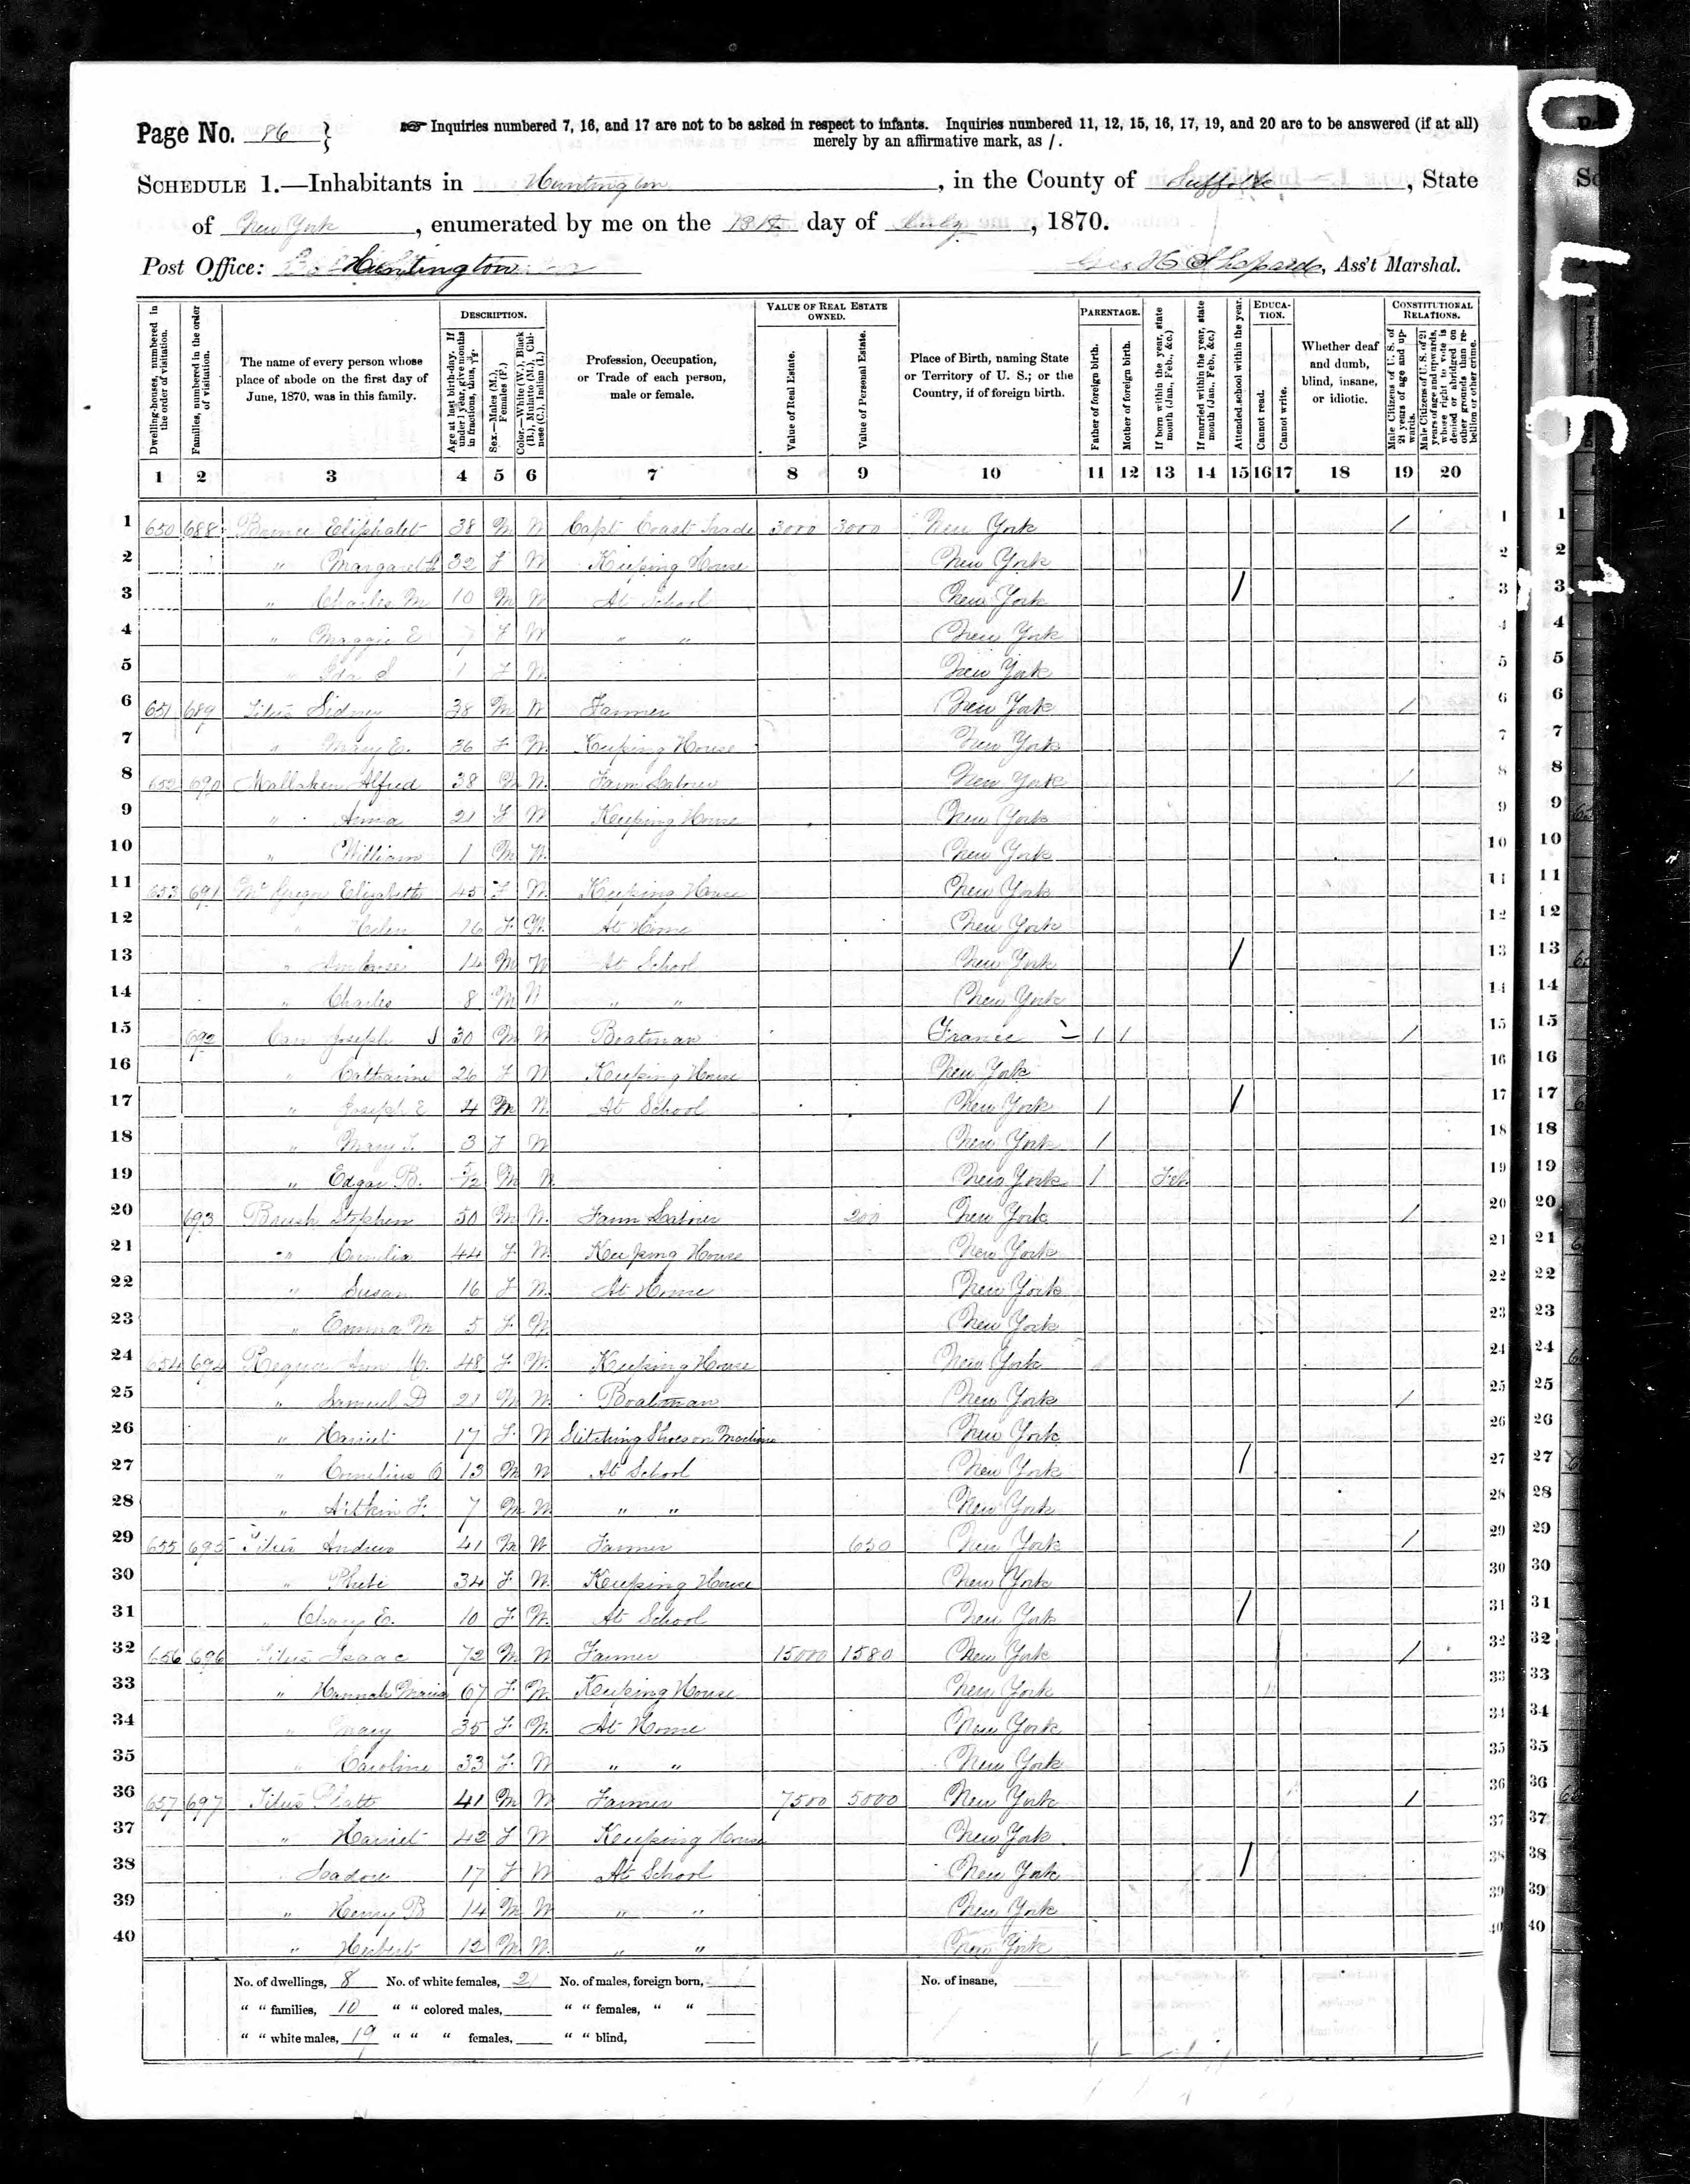 Page No. 86
Inquiries numbered 7, 16, and 17 are not to be asked in respect to infants. Inquiries numbered 11, 12, 15, 16, 17, 19, and 20 are to be answered (if at all)
merely by an affirmative mark, as /.
SCHEDULE 1.—Inhabitants in Huntington, in the County of Suffolk, State
of New York, enumerated by me on the day of July, 1870.
Post Office: Huntington
H Shepard, Ass't Marshal.
Dwelling-houses, numbered in the order of visitation.
Families, numbered in the order of visitation.
The name of every person whose place of abode on the first day of June, 1870, was in this family.
DESCRIPTION.
Age at last birth-day. If under 1 year, give months in fractions, thus, 3/12.
Sex.—Males (M.), Females (F.)
Color.—White (W.), Black (B.), Mulatto (M.), Chinese (C.), Indian (I.)
Profession, Occupation, or Trade of each person, male or female.
VALUE OF REAL ESTATE OWNED.
Value of Real Estate.
Value of Personal Estate.
Place of Birth, naming State or Territory of U. S.; or the Country, if of foreign birth.
PARENTAGE.
Father of foreign birth.
Mother of foreign birth.
If born within the year, state month (Jan., Feb., &c.)
If married within the year, state month (Jan., Feb., &c.)
Attended school within the year.
EDUCATION.
Cannot read.
Cannot write.
Whether deaf and dumb, blind, insane, or idiotic.
CONSTITUTIONAL RELATIONS.
Male Citizens of U. S. of 21 years of age and upwards.
Male Citizens of U. S. of 21 years of age and upwards, whose right to vote is denied or abridged on other grounds than rebellion or other crime.
1 2 3 4 5 6 7 8 9 10 11 12 13 14 15 16 17 18 19 20
1 650 688 Eliphalet 38 M W Capt Coast Trade 3000 3000 New York / 1
2 " Margaret 32 F W Keeping House New York 2
3 " Charles M 10 M W At School New York / 3
4 " Maggie E 7 F W " " New York 4
5 " Ida S 1 F W New York 5
6 651 689 Titus Sidney 38 M W Farmer New York / 6
7 " Mary E. 36 F W Keeping House New York 7
8 652 690 Alfred 38 M W Farm Laborer New York / 8
9 " Anna 21 F W Keeping House New York 9
10 " William 1 M W New York 10
11 653 691 Elizabeth 45 F W Keeping House New York 11
12 " Helen 16 F W At Home New York 12
13 " Ambrose 14 M W At School New York / 13
14 " Charles 8 M W " " New York 14
15 692 Joseph 30 M W Boatman France / / / 15
16 " Catharine 26 F W Keeping House New York 16
17 " Joseph E 4 M W At School New York / / 17
18 " Mary 3 F W New York / 18
19 " Edgar B. 5/12 M W New York / Feb 19
20 693 Brush Stephen 50 M W Farm Laborer 200 New York / 20
21 " 44 F W Keeping House New York 21
22 " Susan 16 F W At Home New York 22
23 " Emma M 5 F W New York 23
24 654 694 Requa Ann M. 48 F W Keeping House New York 24
25 " Samuel D 21 M W Boatman New York / 25
26 " Harriet 17 F W Stitching Shoes on Machine New York 26
27 " Cornelius O 13 M W At School New York / 27
28 " Aitkin F. 7 M W " " New York 28
29 655 695 Titus Andrew 41 M W Farmer 650 New York / 29
30 " Phebe 34 F W Keeping House New York 30
31 " E. 10 F W At School New York / 31
32 656 696 Titus Isaac 72 M W Farmer 15000 1580 New York / 32
33 " Hannah Maria 67 F W Keeping House New York 33
34 " Mary 35 F W At Home New York 34
35 " Caroline 33 F W " " New York 35
36 657 697 Titus Platt 41 M W Farmer 7500 5000 New York / 36
37 " Harriet 42 F W Keeping House New York 37
38 17 F W At School New York / 38
39 " Henry B 14 M W " " New York 39
40 " Herbert 12 M W " " New York 40
No. of dwellings, 8 No. of white females, 21 No. of males, foreign born, 1 No. of insane,
" " families, 10 " " colored males, " " females, " "
" " white males, 19 " " " females, " " blind,